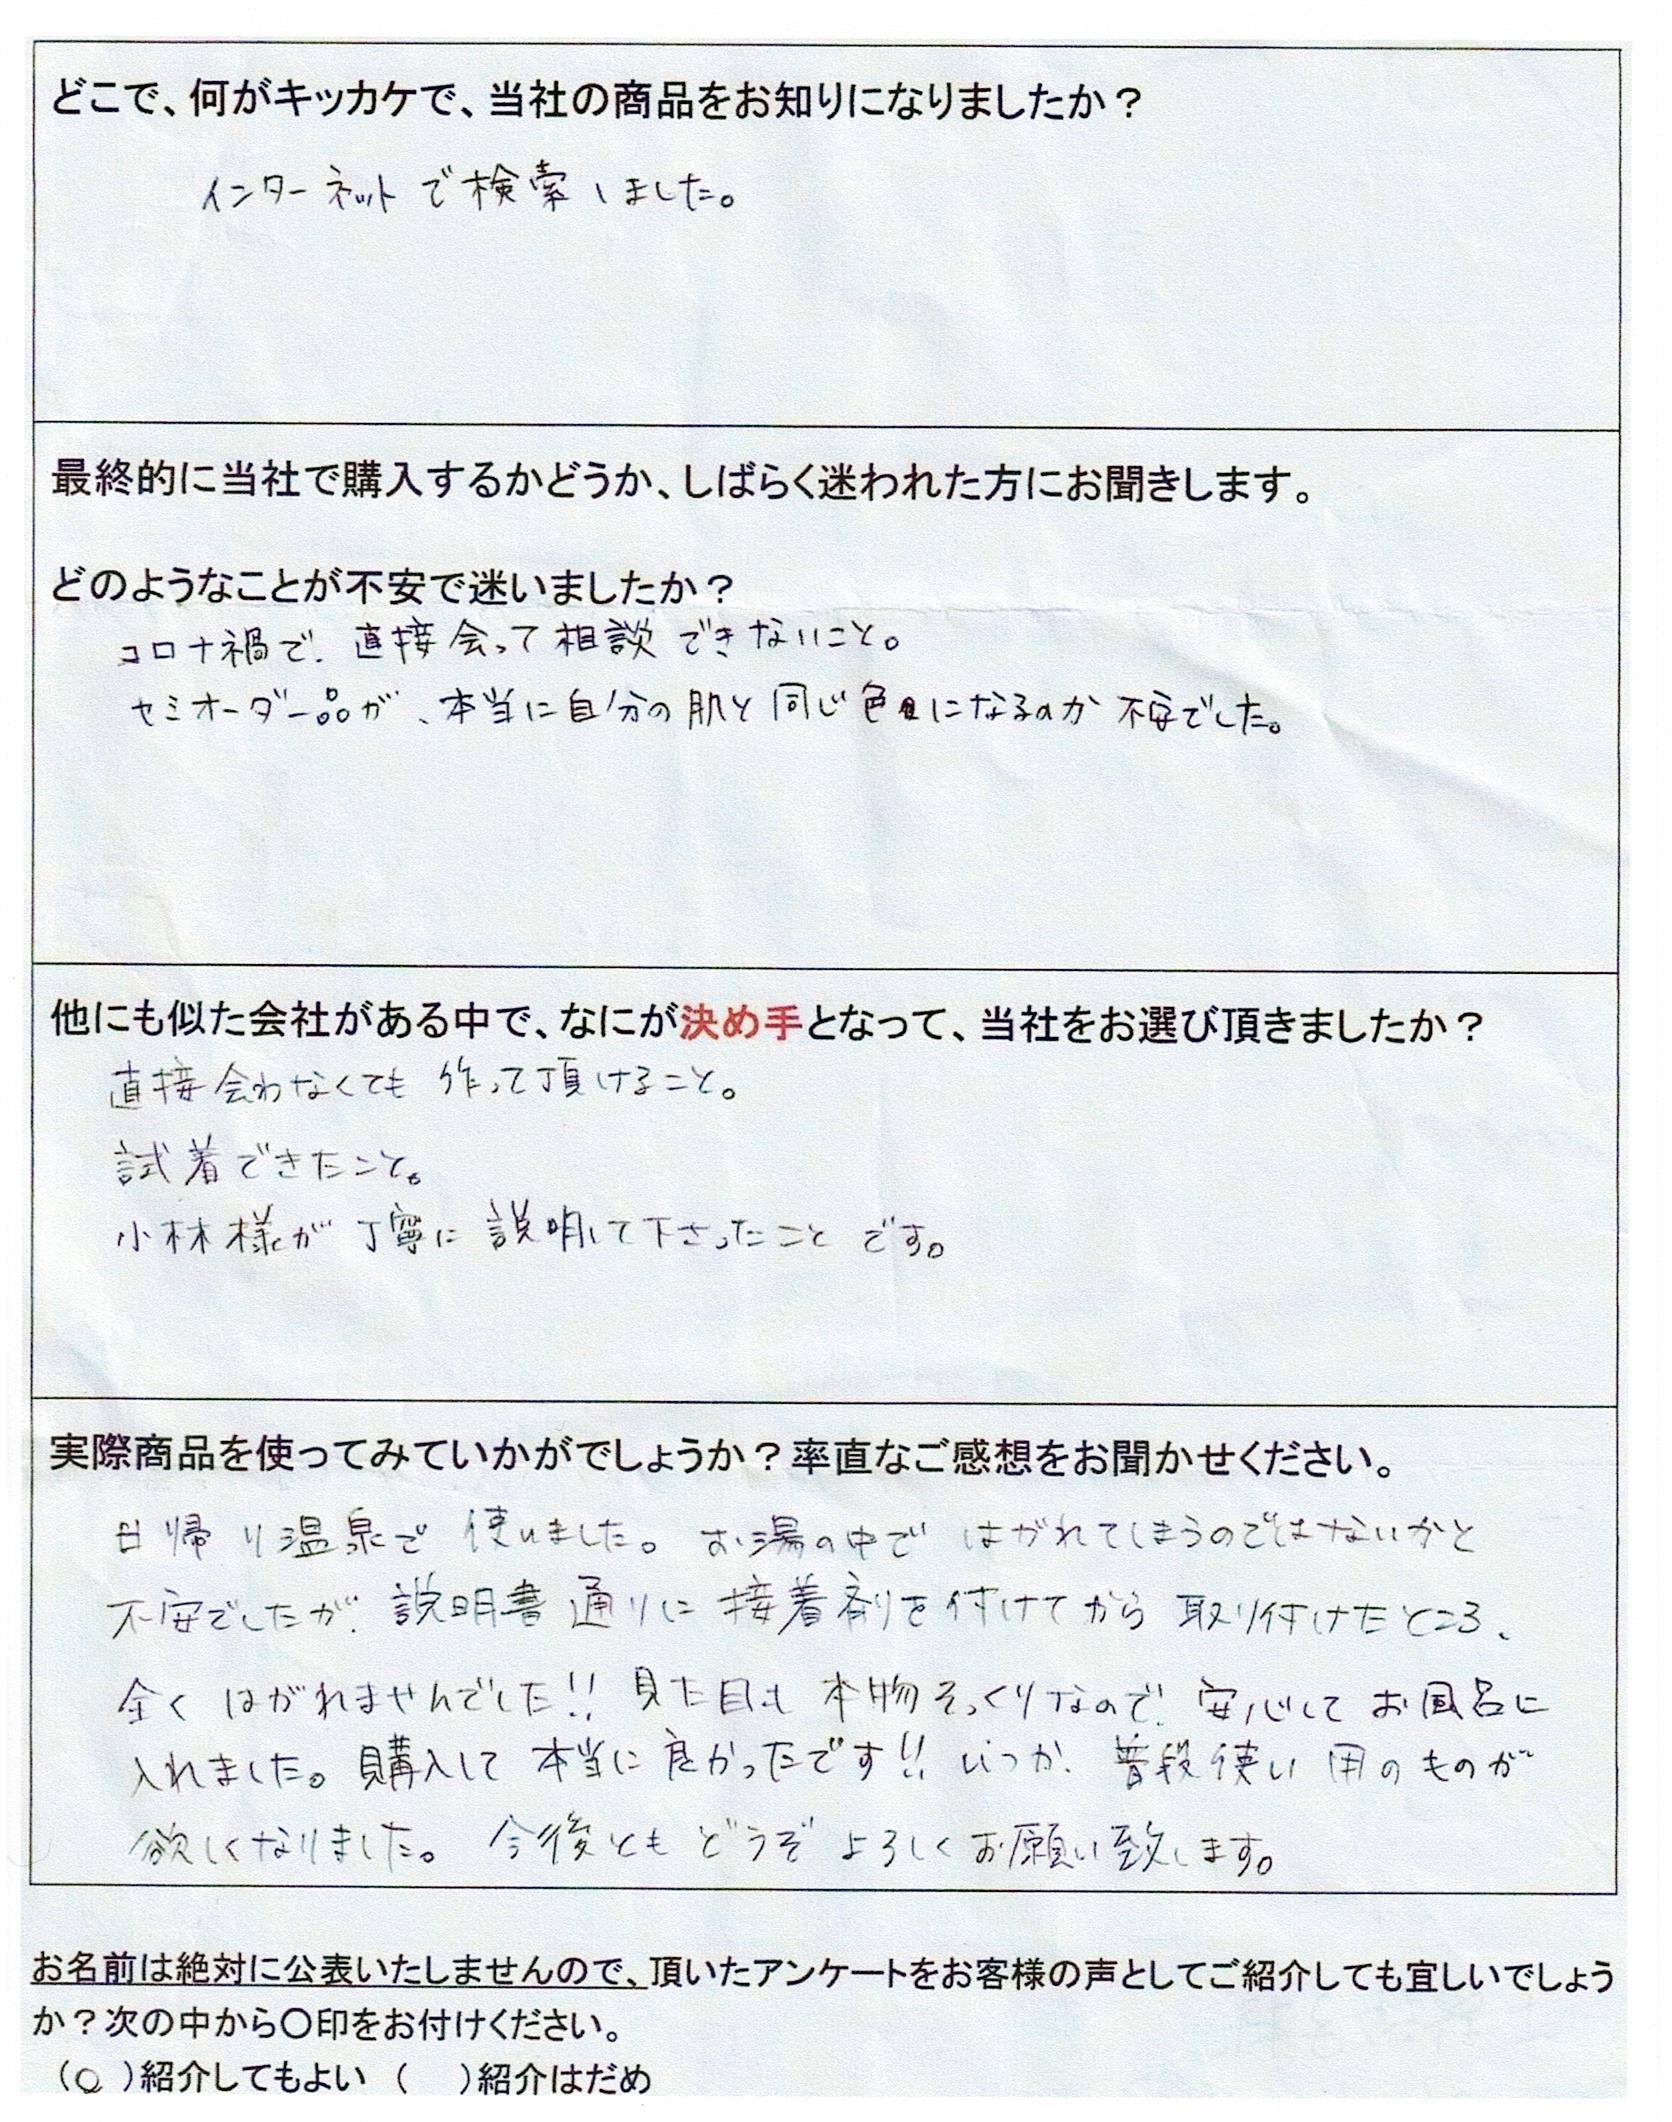 どこで、何がキッカケで、当社の商品をお知りになりましたか？
インターネットで検索しました。
最終的に当社で購入するかどうか、しばらく迷われた方にお聞きします。
どのようなことが不安で迷いましたか？
コロナ禍で、直接会って相談できないこと。
セミオーダー品が、本当に自分の肌と同じ色になるのか不安でした。
他にも似た会社がある中で、なにが決め手となって、当社をお選び頂きましたか？
直接会わなくても作って頂けること。
試着できたこと。
小林様が丁寧に説明して下さったことです。
実際商品を使ってみていかがでしょうか？率直なご感想をお聞かせください。
日帰り温泉で使いました。お湯の中ではがれてしまうのではないかと
不安でしたが、説明書通りに接着剤を付けてから取り付けたところ、
全くはがれませんでした!! 見た目も本物そっくりなので、安心してお風呂に
入れました。購入して本当に良かったです!! いつか、普段使い用のものが
欲しくなりました。今後ともどうぞよろしくお願い致します。
お名前は絶対に公表いたしませんので、頂いたアンケートをお客様の声としてご紹介しても宜しいでしょう
か？次の中から〇印をお付けください。
（○）紹介してもよい （　）紹介はだめ